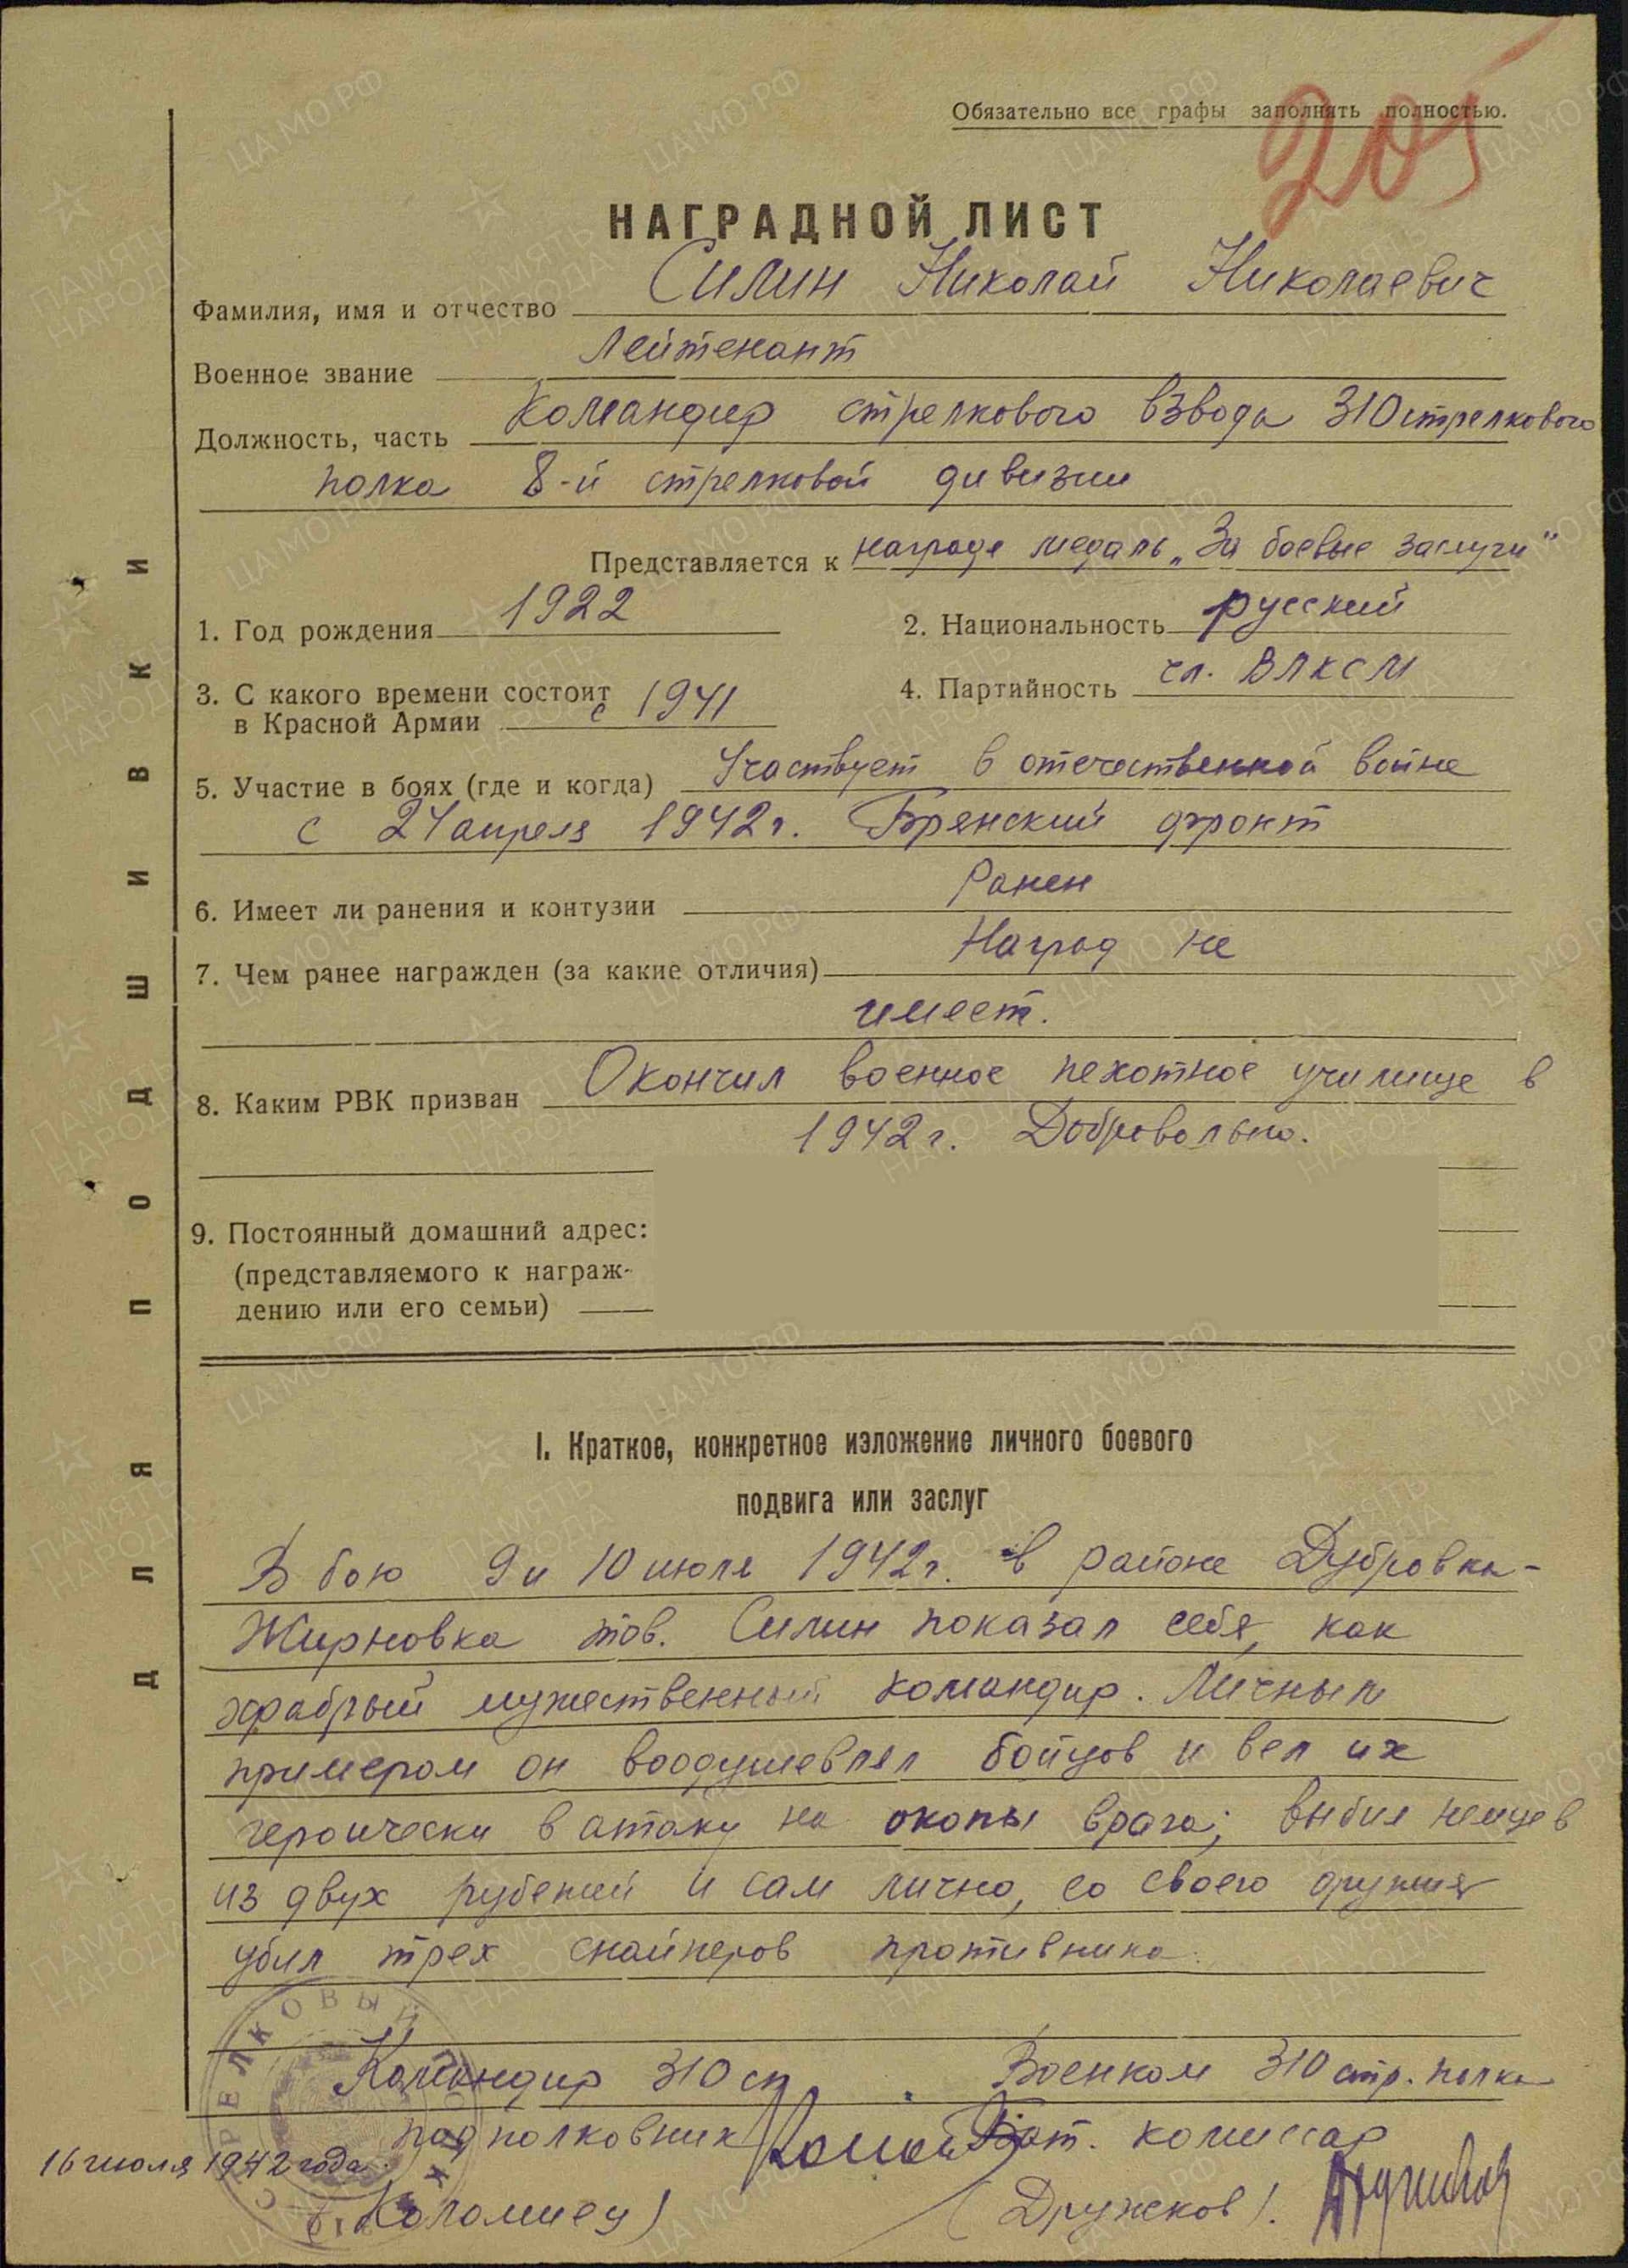 Обязательно все графы заполнять полностью.
205
НАГРАДНОЙ ЛИСТ
Фамилия, имя и отчество Силин Николай Николаевич
Военное звание Лейтенант
Должность, часть Командир стрелкового взвода 310 стрелкового
полка 8-й стрелковой дивизии
Представляется к награде медаль „За боевые заслуги"
1. Год рождения 1922 2. Национальность русский
3. С какого времени состоит
в Красной Армии с 1941 4. Партийность чл. ВЛКСМ
5. Участие в боях (где и когда) Участвует в отечественной войне
с 24 апреля 1942 г. Брянский фронт
6. Имеет ли ранения и контузии Ранен
7. Чем ранее награжден (за какие отличия) Наград не
имеет.
8. Каким РВК призван Окончил военное пехотное училище в
1942 г. Добровольно.
9. Постоянный домашний адрес:
(представляемого к награж-
дению или его семьи)
I. Краткое, конкретное изложение личного боевого
подвига или заслуг
В бою 9 и 10 июля 1942 г. в районе Дубровка-
Жирновка тов. Силин показал себя, как
храбрый мужественный командир. Личным
примером он воодушевлял бойцов и вел их
героически в атаку на окопы врага; выбил немцев
из двух рубежей и сам лично, со своего оружия
убил трех снайперов противника.
Командир 310 сп Военком 310 стр. полка
подполковник Бат. комиссар
16 июля 1942 года.
Коломиец) (Дружков).
ДЛЯ ПОДШИВКИ
СТРЕЛКОВЫЙ
ПАМЯТЬ НАРОДА
ЦАМО.РФ